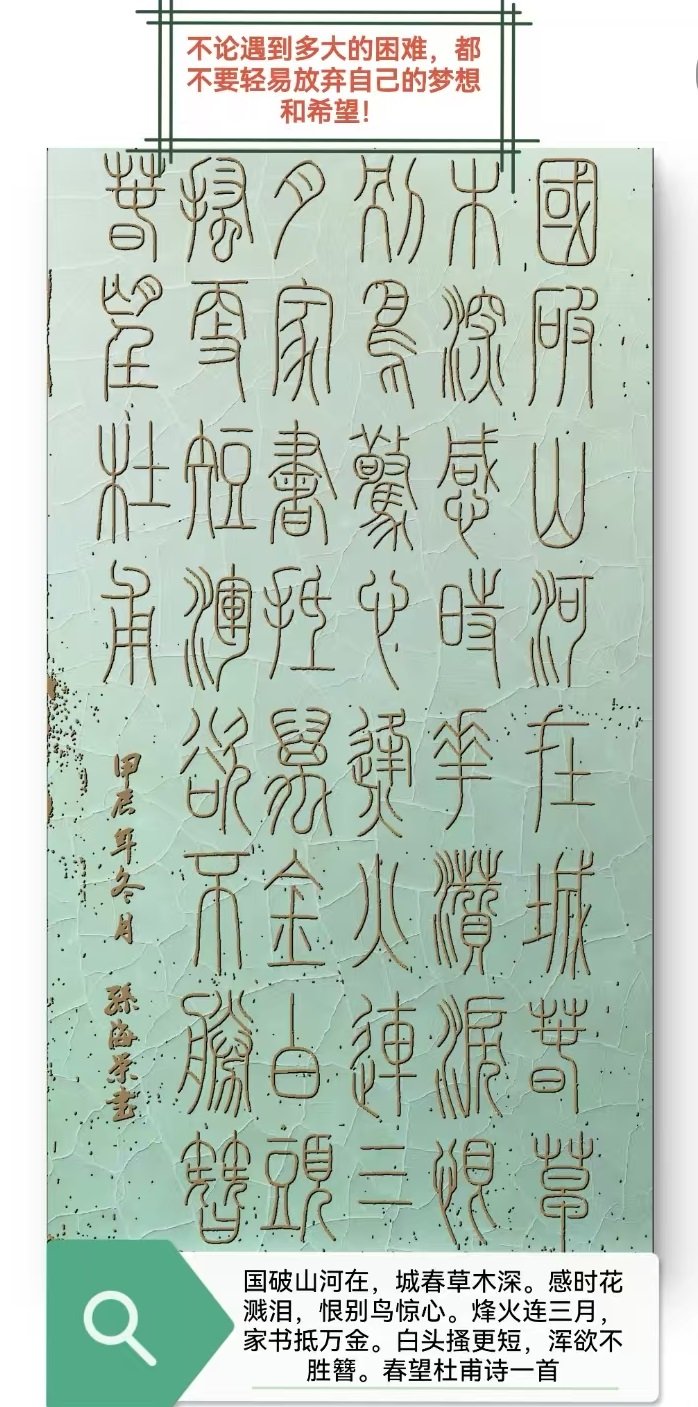 不论遇到多大的困难，都
不要轻易放弃自己的梦想
和希望！
國破山河在城春草
木深感時華灒淚恨
別鳥驚心烽火連三
月家書抵萬金白頭
搔更短渾欲不勝簪
春望杜甫
甲辰年冬月 孫海榮書
国破山河在，城春草木深。感时花
溅泪，恨别鸟惊心。烽火连三月，
家书抵万金。白头搔更短，浑欲不
胜簪。春望杜甫诗一首